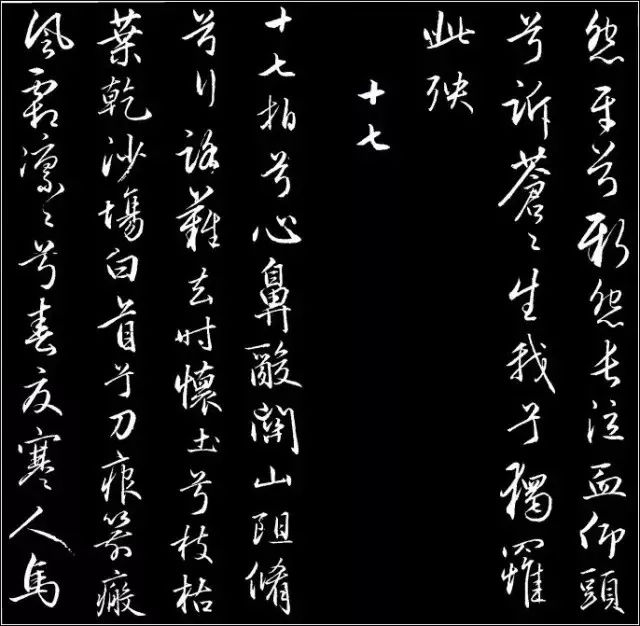 怨平兮新怨長泣血仰頭
兮訴蒼〻生我兮獨罹
此殃
十七
十七拍兮心鼻酸關山阻脩
兮行路難去時懷土兮枝枯
葉乾沙場白首兮刀痕箭瘢
風霜凛〻兮春夏寒人馬